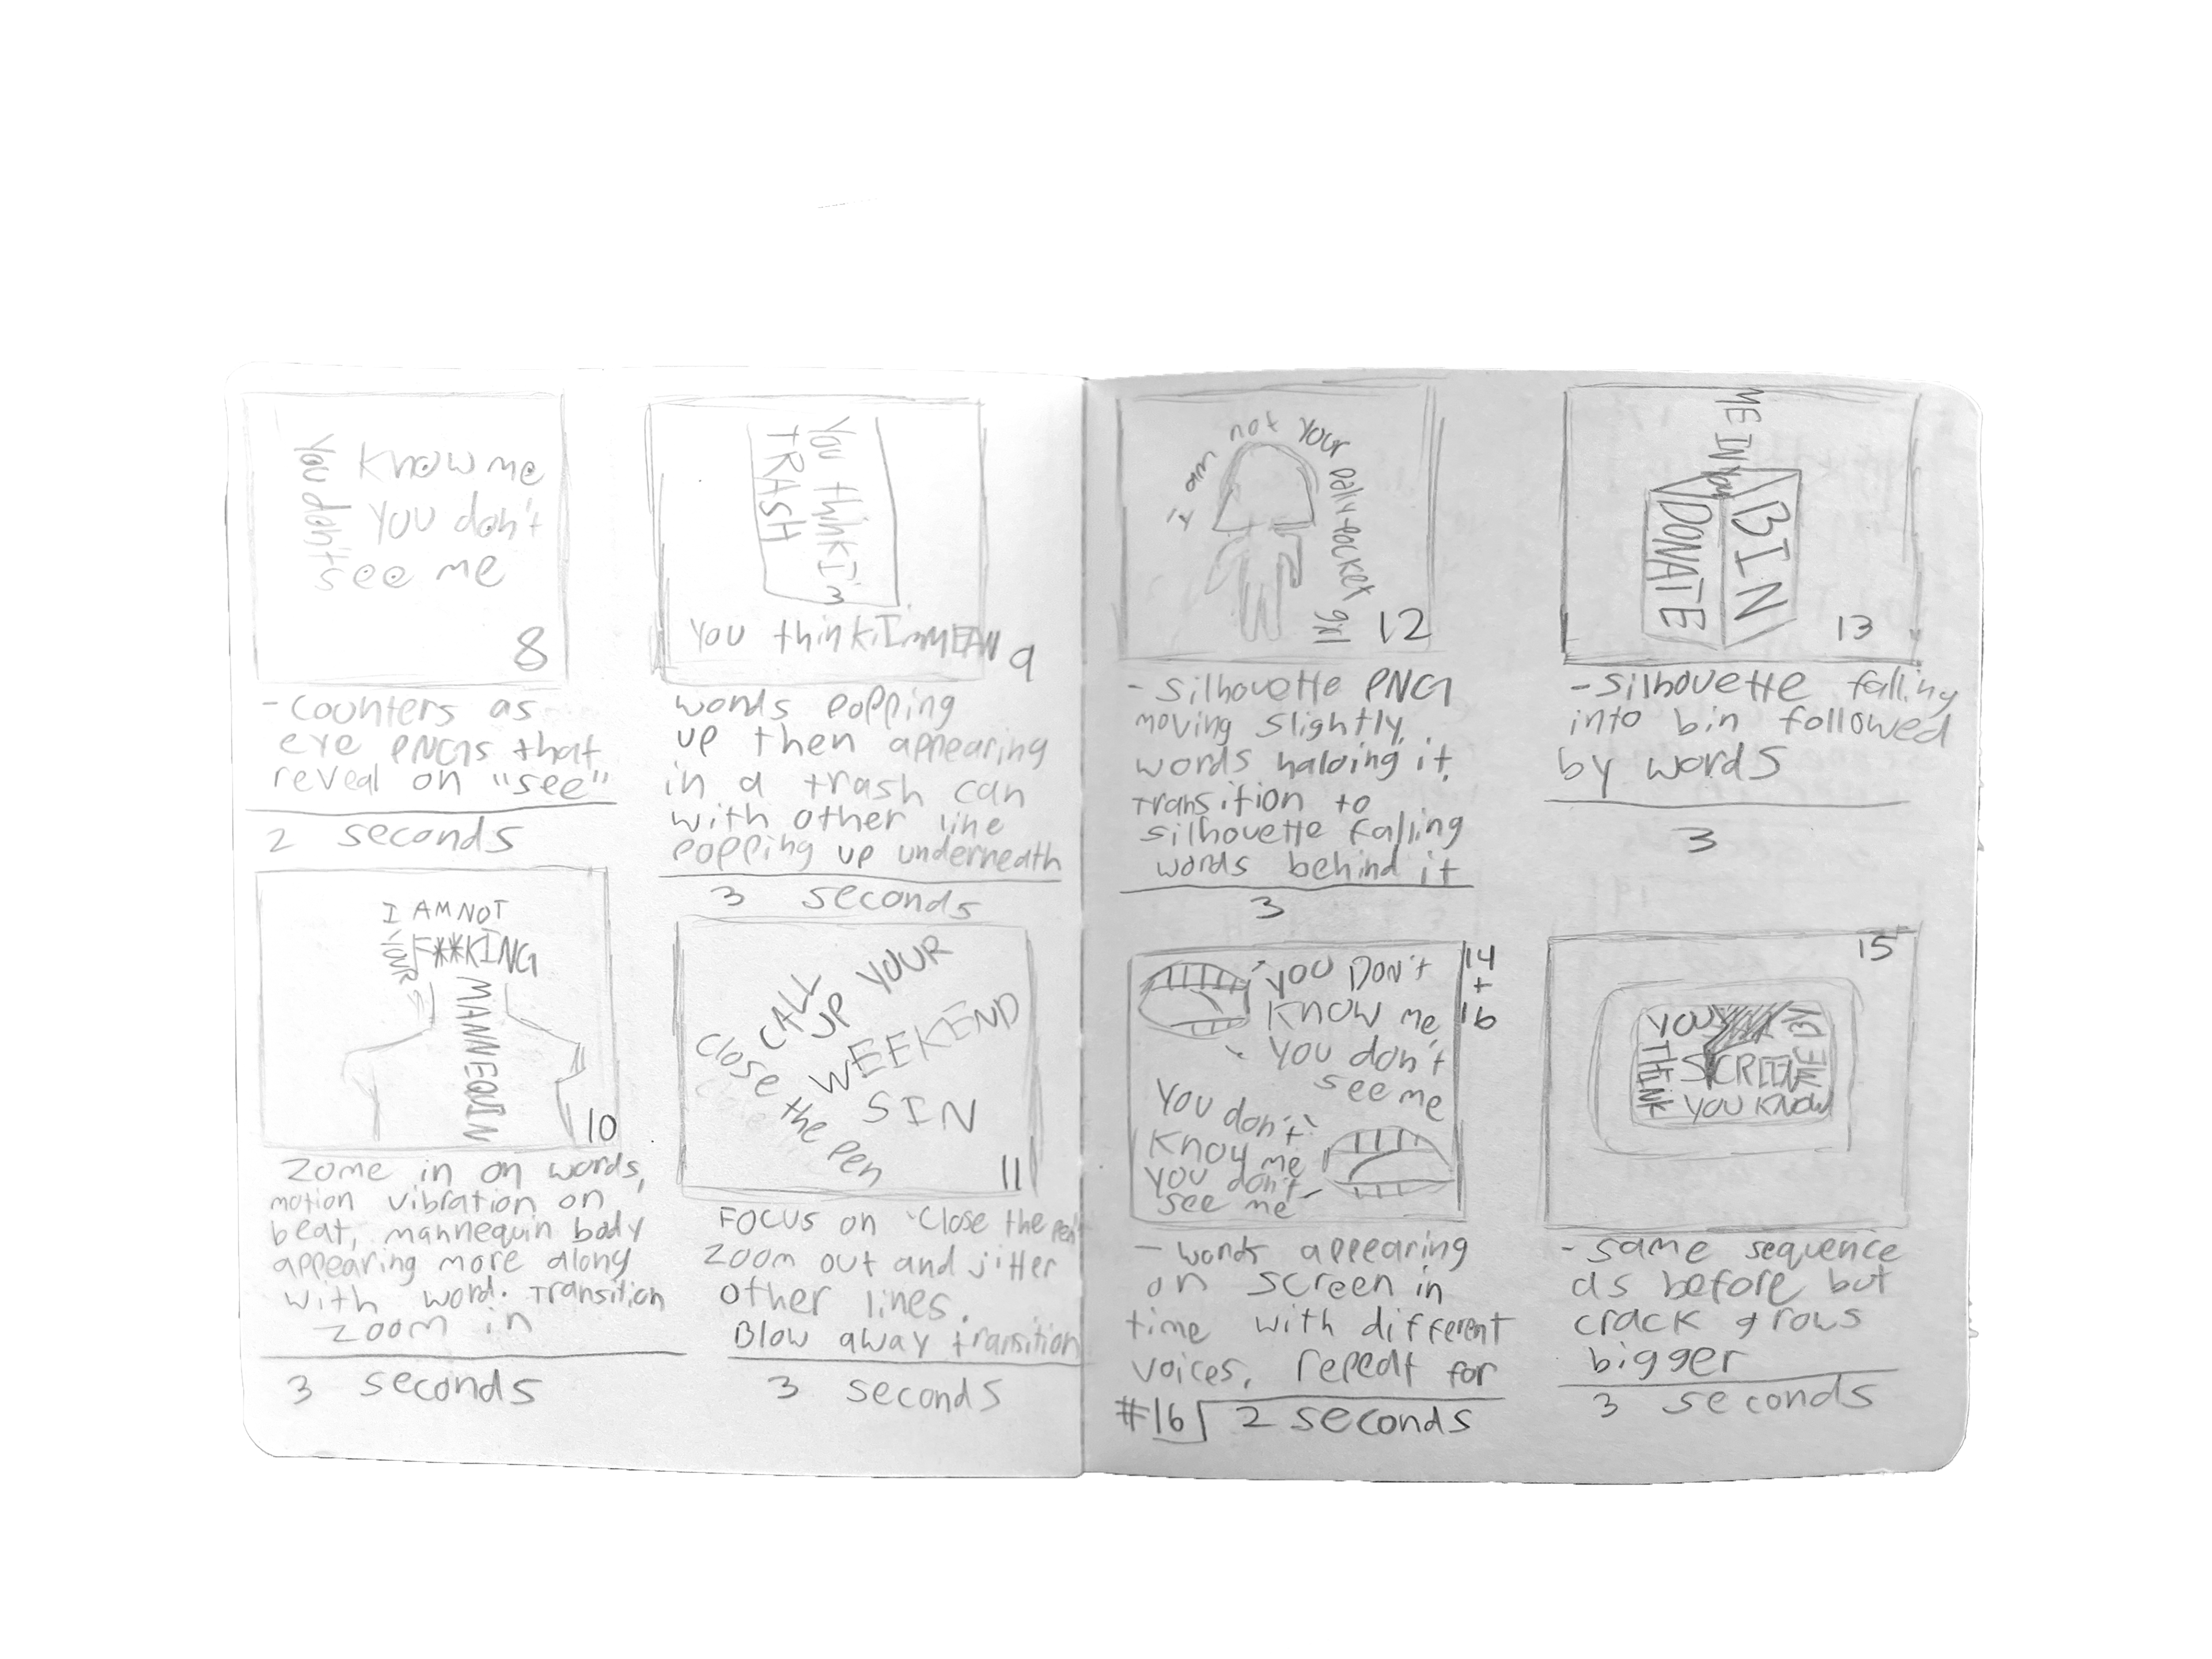 you don't
know me
you don't
see me
8
- counters as
eye PNGs that
reveal on "see"
2 seconds
You think I'm
TRASH
you think I'm MEAN
9
words popping
up then appearing
in a trash can
with other line
popping up underneath
3 seconds
I AM NOT
YOUR
F**KING
MANNEQUIN
10
zome in on words,
motion vibration on
beat, mannequin body
appearing more along
with word. Transition
zoom in
3 seconds
Close the pen
CALL
UP YOUR
WEEKEND
SIN
11
FOCUS on "Close the pen"
zoom out and jitter
other lines.
Blow away transition
3 seconds
I am not your paliv-pocket girl
12
- silhouette PNG
moving slightly.
words haloing it.
transition to
silhouette falling
words behind it
3
ME IN YOUR
DONATE
BIN
13
- silhouette falling
into bin followed
by words
3
14
+
16
YOU DON'T
KNOW me
YOU don't
see me
YOU don't
Know me
YOU don't
see me
- words appearing
on screen in
time with different
voices, repeat for
#16 2 seconds
15
YOU
THINK
YOU KNOW
ME BY
SCREEN
- same sequence
as before but
crack grows
bigger
3 seconds